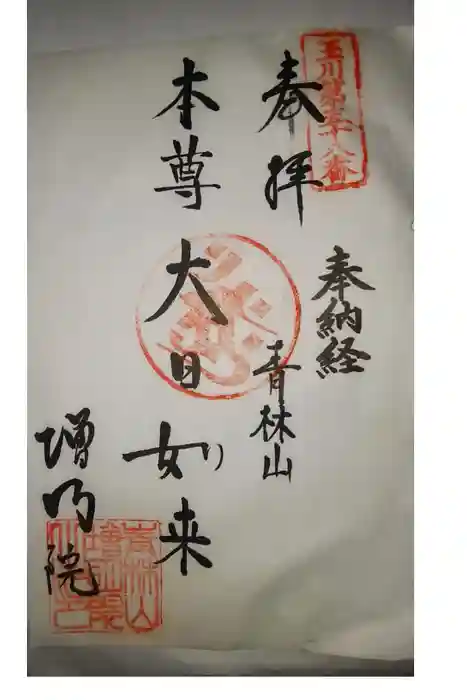 玉川第五十八番
奉拝
奉納経
青林山
本尊 大日如来
増明院